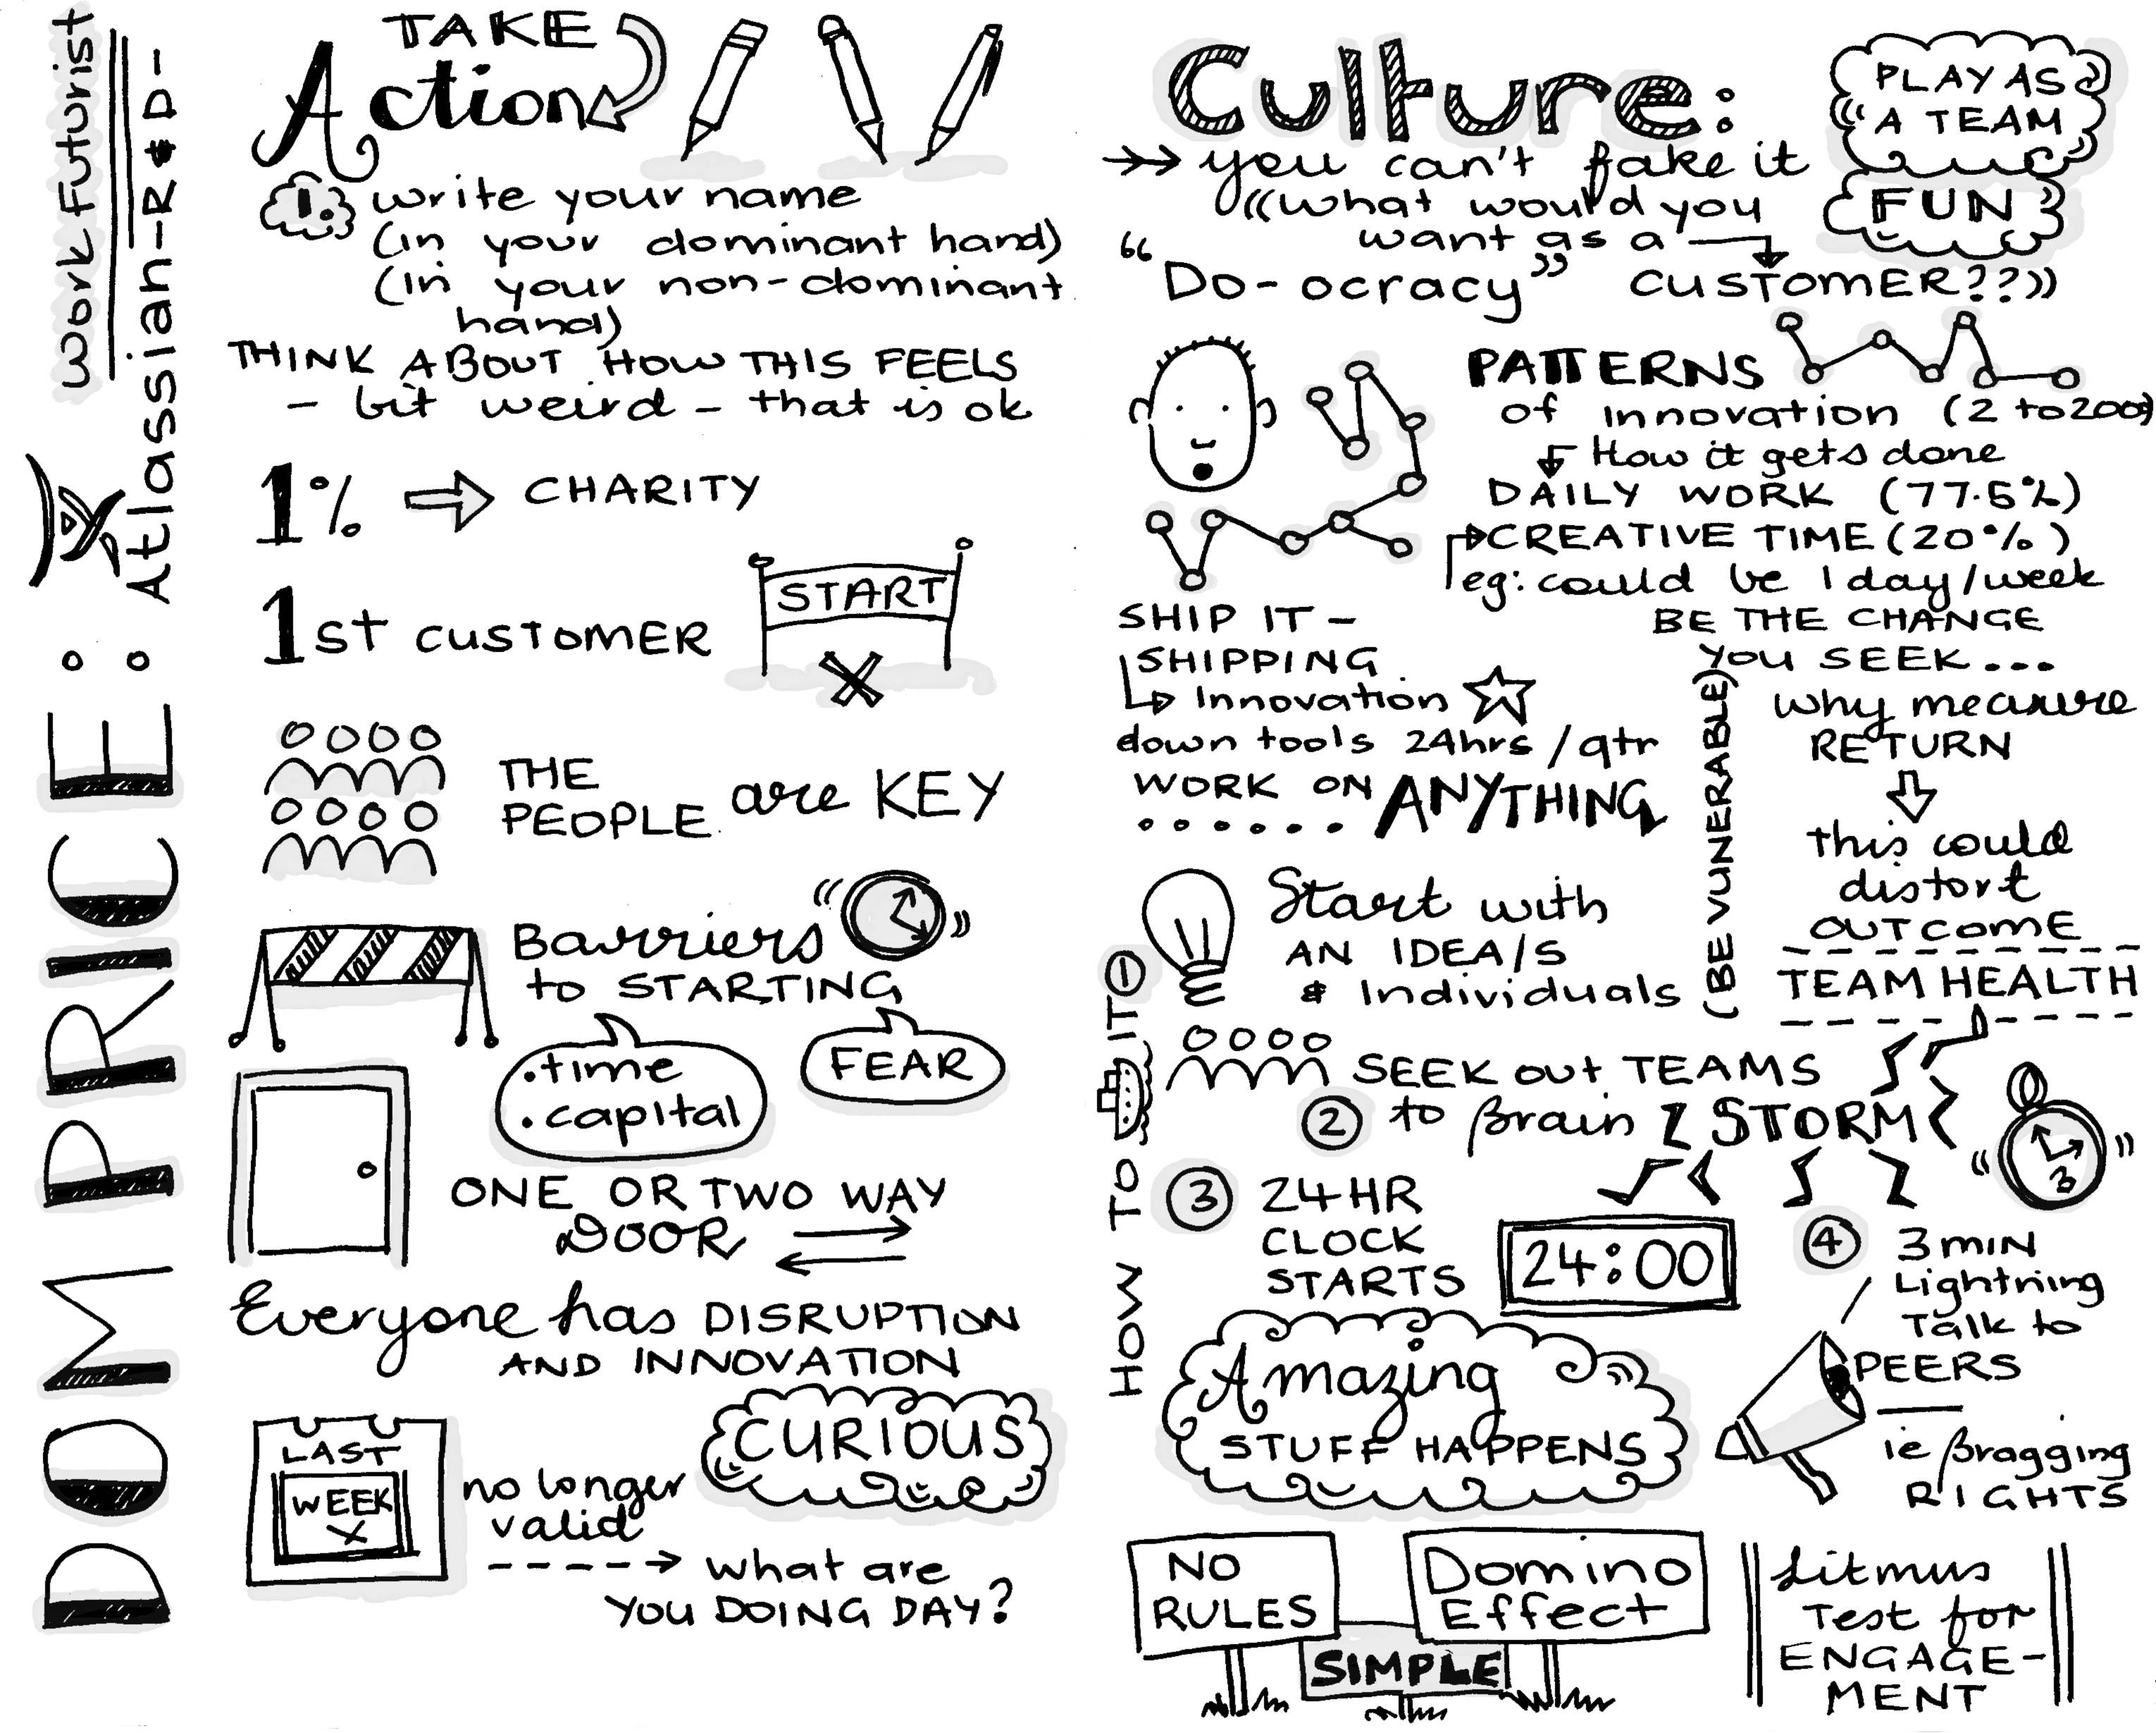 DOM PRICE:
Work Futurist
Atlassian-R&D-
TAKE
Action
1. write your name
(in your dominant hand)
(in your non-dominant
hand)
THINK ABOUT HOW THIS FEELS
- bit weird - that is ok
1% CHARITY
START
1st CUSTOMER
THE
PEOPLE are KEY
Barriers
to STARTING
•time
•capital
FEAR
ONE OR TWO WAY
DOOR
Everyone has DISRUPTION
AND INNOVATION
CURIOUS
LAST
WEEK
X
no longer
valid
what are
YOU DOING DAY?
Culture:
PLAY AS
A TEAM
FUN
you can't fake it
((what would you
want as a
CUSTOMER??))
"Do-ocracy"
PATTERNS
of innovation (2 to 2000)
How it gets done
DAILY WORK (77.5%)
CREATIVE TIME (20%)
eg: could be 1 day/week
SHIP IT -
SHIPPING
Innovation
down tools 24hrs/qtr
WORK ON ANYTHING
......
BE THE CHANGE
YOU SEEK...
(BE VUNERABLE)
why measure
RETURN
this could
distort
OUTCOME
TEAM HEALTH
HOW TO IT
1
Start with
AN IDEA/S
& Individuals
SEEK OUT TEAMS
2 to Brain STORM
3
3 24HR
CLOCK
STARTS
24:00
4 3 MIN
Lightning
Talk to
PEERS
ie Bragging
RIGHTS
Amazing
STUFF HAPPENS
NO
RULES
Domino
Effect
SIMPLE
Litmus
Test for
ENGAGE-
MENT